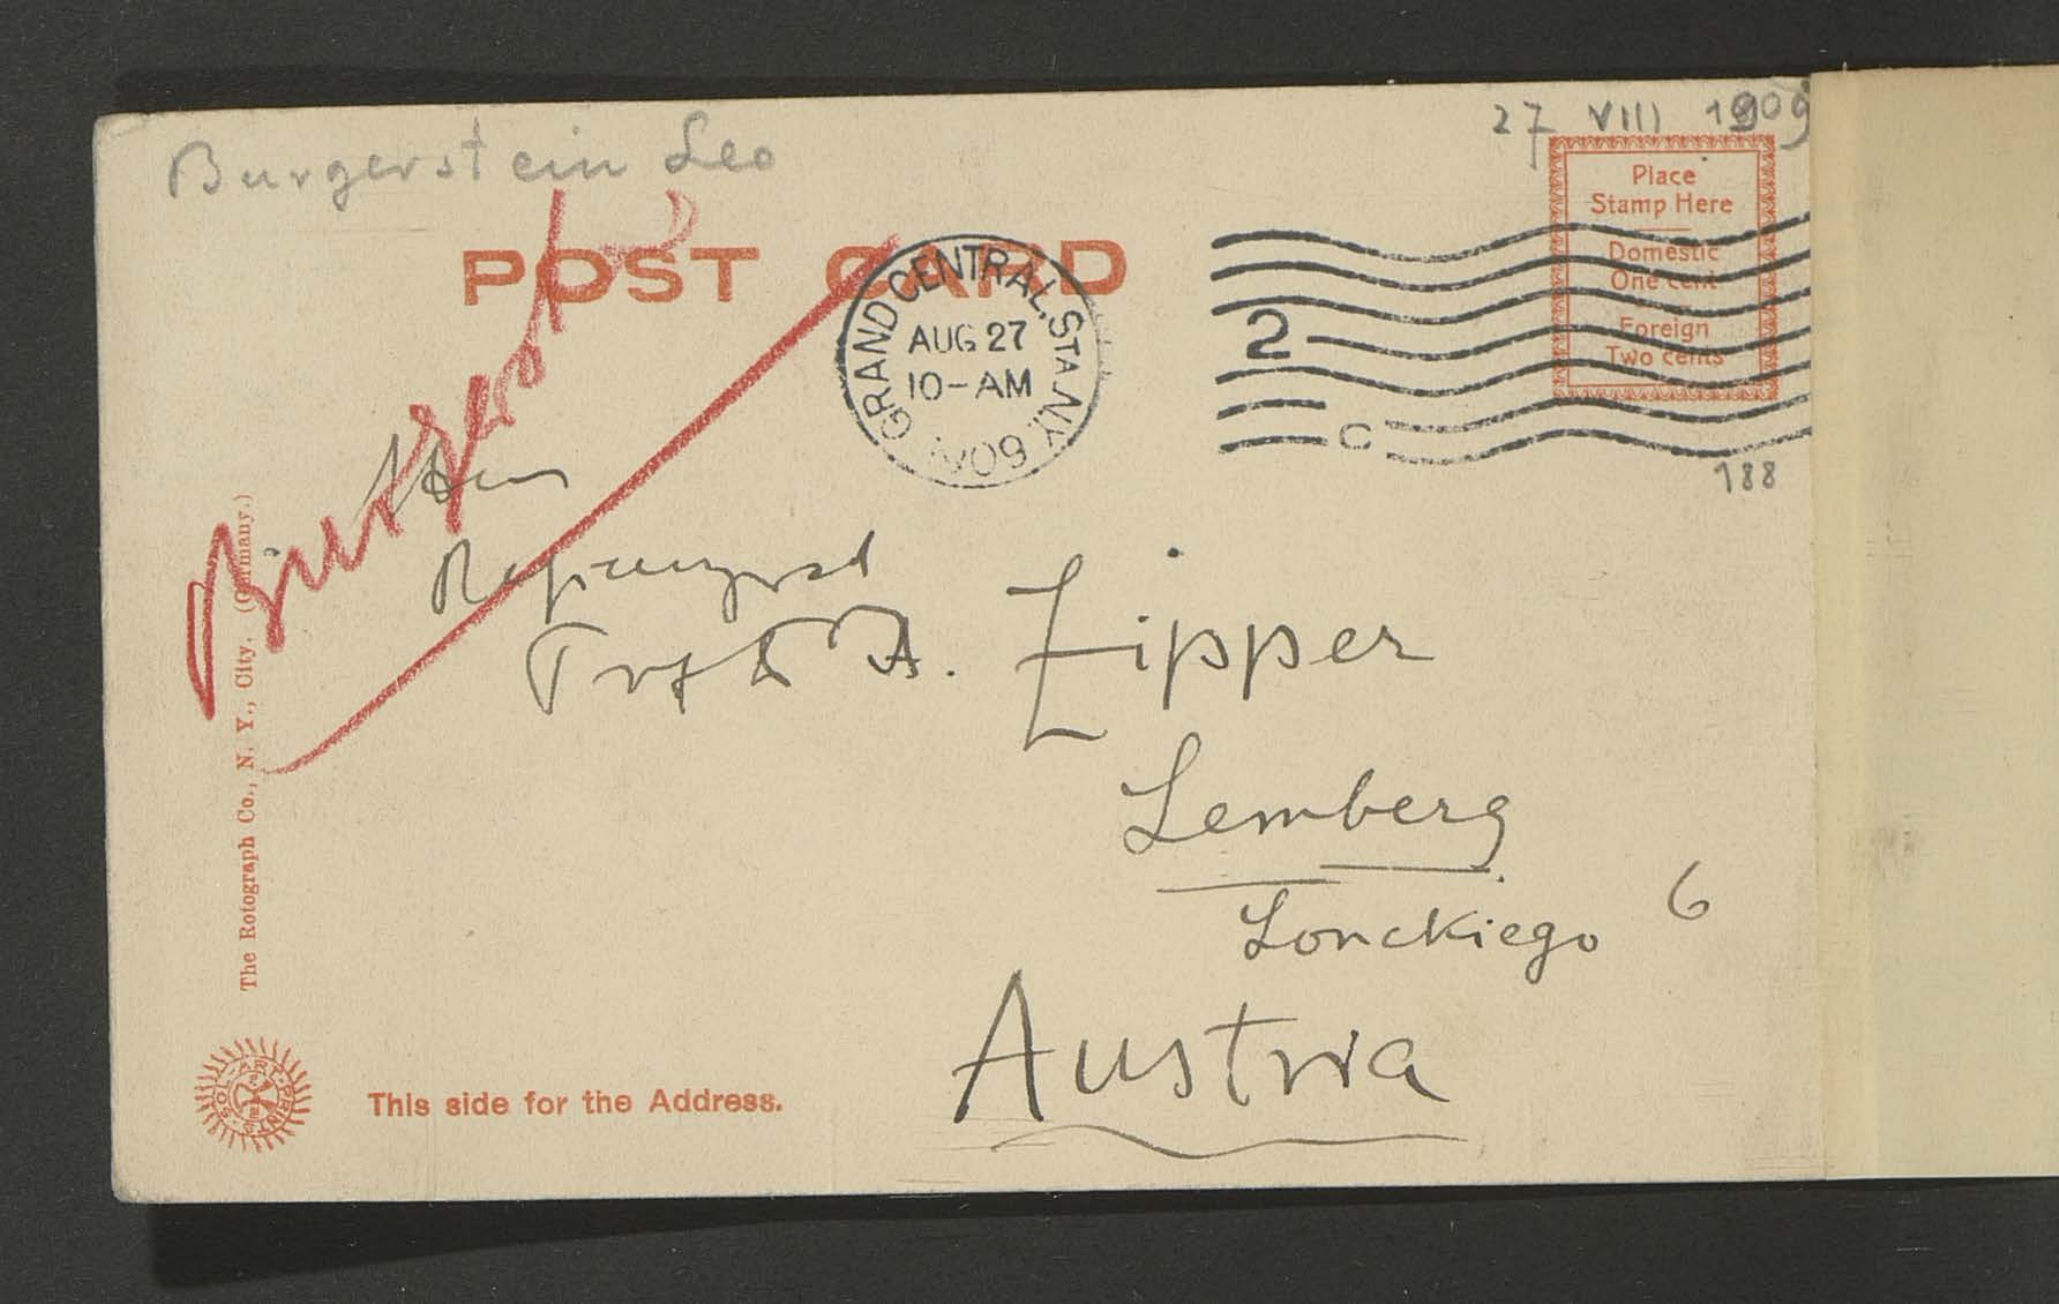 Burgerstein Leo
27 VIII 1909
Place
Stamp Here
Domestic
One cent
Foreign
Two cents
POST CARD
GRAND CENTRAL, STA. N.Y.
AUG 27
10-AM
1909
2
C
188
Herrn
Regierungsrat
Prof. Dr. A. Zipper
Lemberg
Lonckiego 6
Austria
The Rotograph Co., N. Y., City. (Germany.)
This side for the Address.